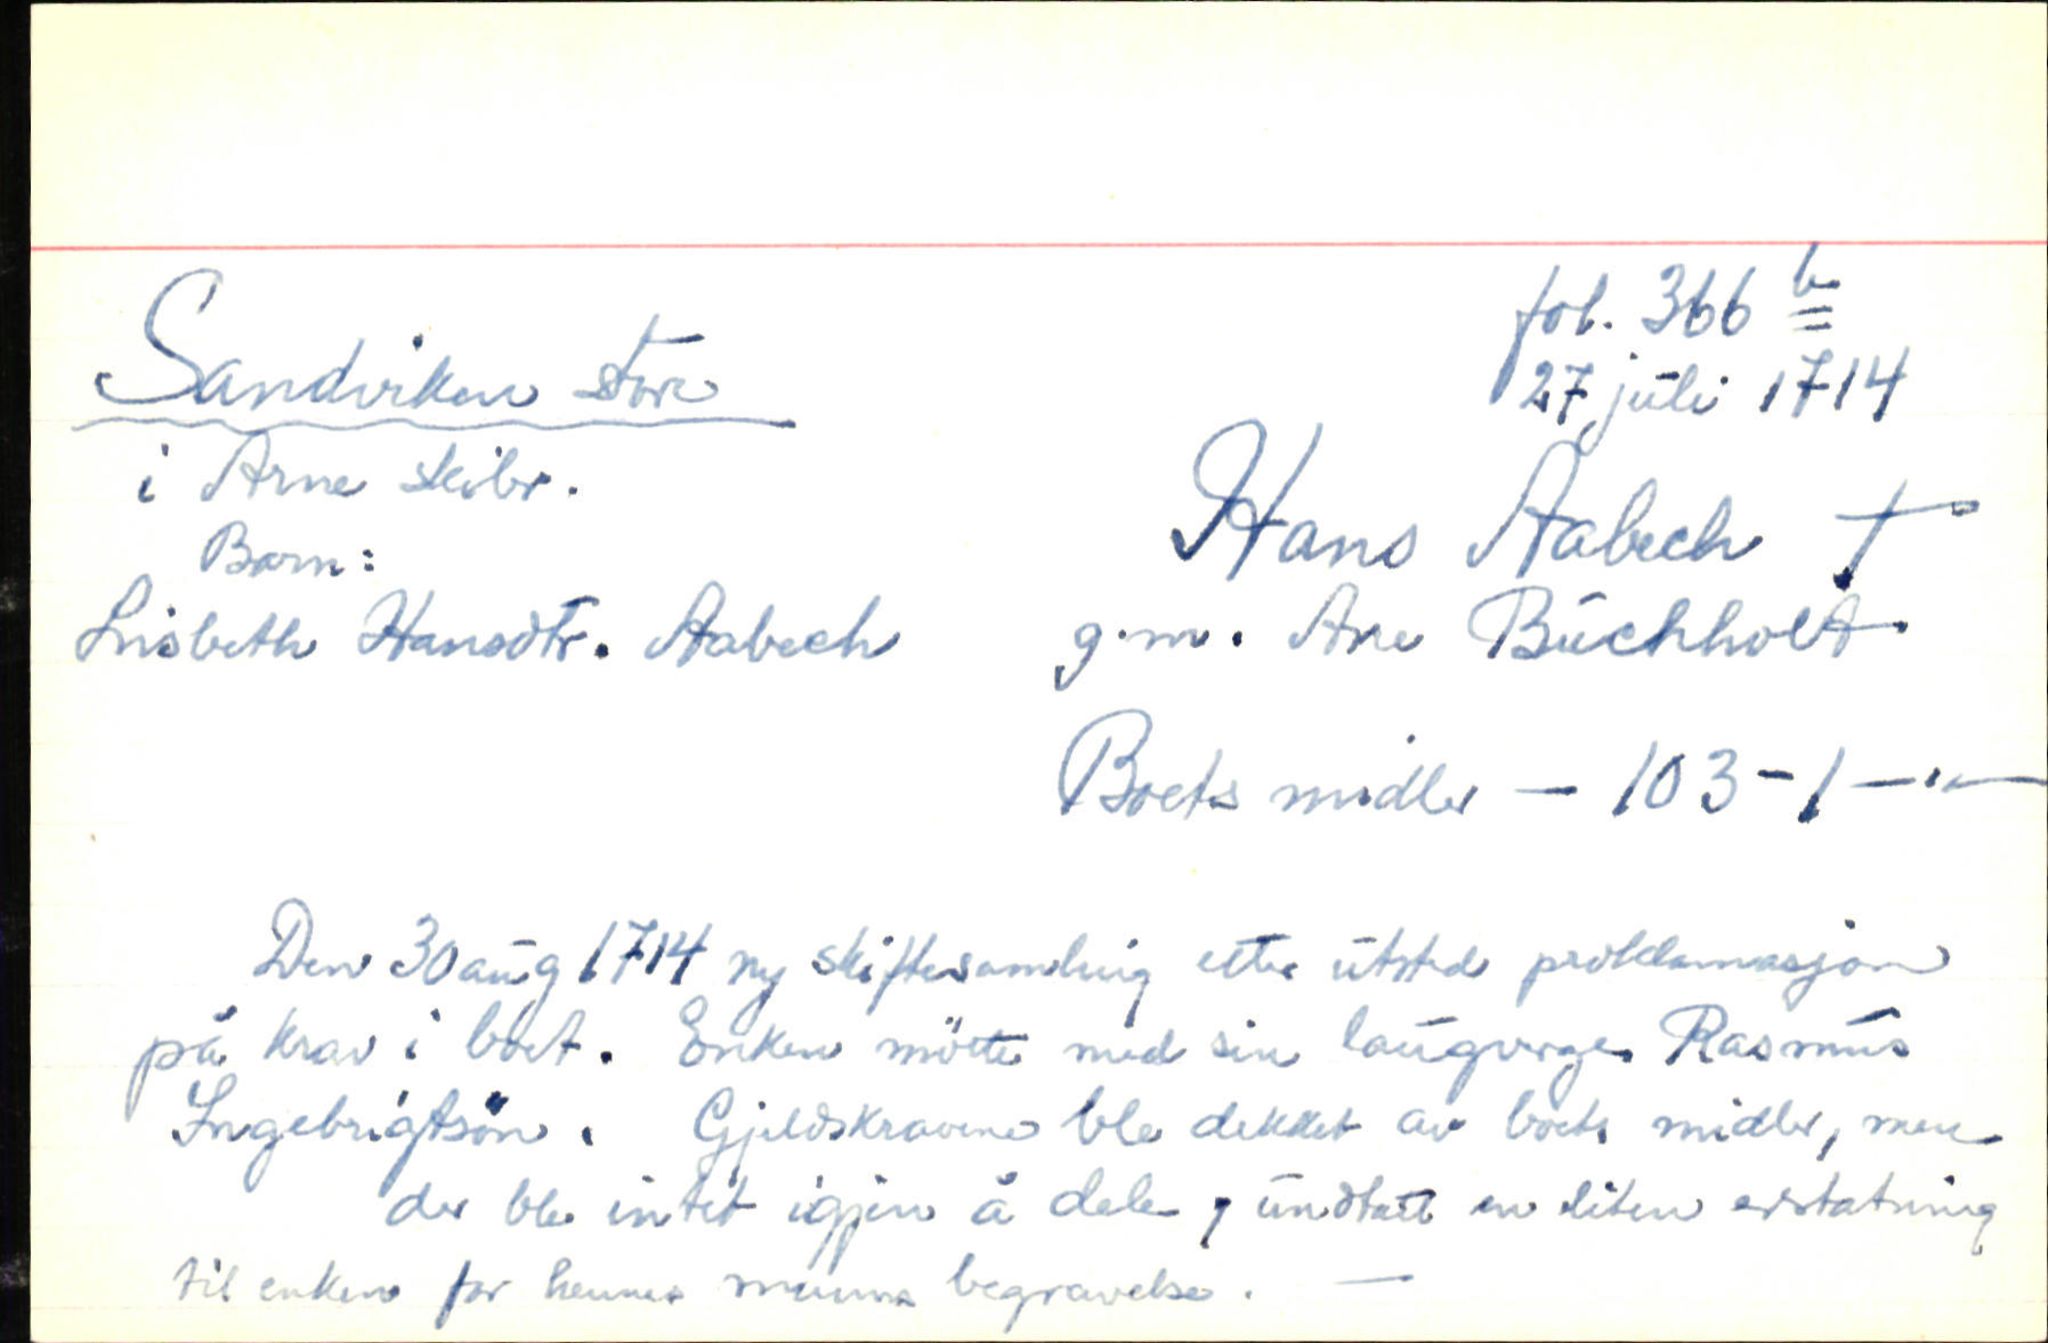 fol. 366 b
27 juli 1714
Sandviken store
i Arne skibr.
Hans Aabech †
Barn:
Lisbeth Hansdtr. Aabech
g.m. Ane Buchholt
Boets midler – 103 – 1 – " –
Den 30 aug 1714 ny skiftesamling etter utsted proklamasjon
på krav i boet. Enken mötte med sin laugverge Rasmus
Ingebrigtsön. Gjeldskravene ble dekket av boets midler, men
der ble intet igjen å dele, undtatt en liten erstatning
til enken for hennes manns begravelse. —